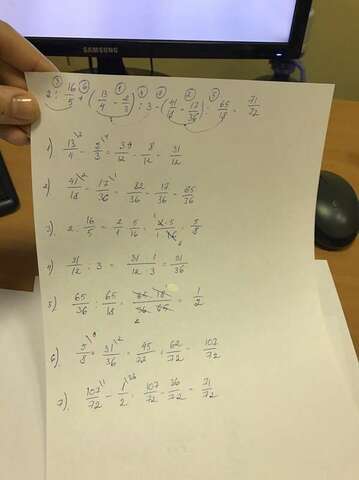 SAMSUNG
③ ⑥ ① ④ ⑦ ② ⑤
2 : 16/5 + (13/4 - 2/3) : 3 - (41/18 - 17/36) : 65/18 = 71/72
1) 13/4 - 2/3 = 39/12 - 8/12 = 31/12
2) 41/18 - 17/36 = 82/36 - 17/36 = 65/36
3) 2 : 16/5 = 2/1 · 5/16 = 2·5/1·16 = 5/8
4) 31/12 : 3 = 31/12 · 1/3 = 31/36
5) 65/36 : 65/18 = 65·18/36·65 = 1/2
6) 5/8 + 31/36 = 45/72 + 62/72 = 107/72
7) 107/72 - 1/2 = 107/72 - 36/72 = 71/72